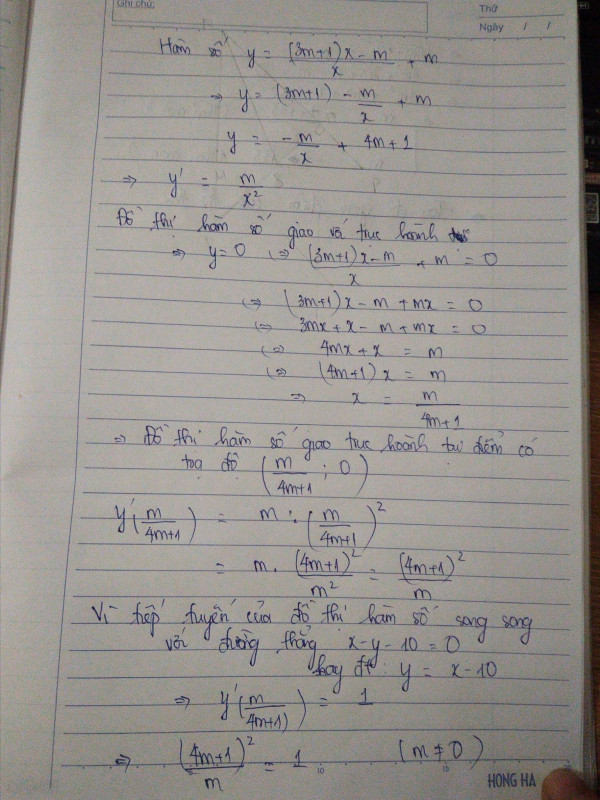 Ghi chú:
Thứ
Ngày / /
Hàm số y = \frac{(3m+1)x - m}{x} + m
⇒ y = (3m+1) - \frac{m}{x} + m
y = -\frac{m}{x} + 4m+1
⇒ y' = \frac{m}{x^2}
Đồ thị hàm số giao với trục hoành
⇒ y=0 (⇒ \frac{(3m+1)x-m}{x} + m = 0
(⇒ (3m+1)x - m + mx = 0
(⇒ 3mx + x - m + mx = 0
(⇒ 4mx + x = m
(⇒ (4m+1)x = m
⇒ x = \frac{m}{4m+1}
⇒ Đồ thị hàm số giao trục hoành tại điểm có
toạ độ (\frac{m}{4m+1} ; 0)
y'(\frac{m}{4m+1}) = m : (\frac{m}{4m+1})^2
= m . \frac{(4m+1)^2}{m^2} = \frac{(4m+1)^2}{m}
Vì tiếp tuyến của đồ thị hàm số song song
với đường thẳng x-y-10=0
hay đt: y = x-10
⇒ y'(\frac{m}{4m+1}) = 1
⇒ \frac{(4m+1)^2}{m} = 1 (m ≠ 0)
10 15
HONG HA